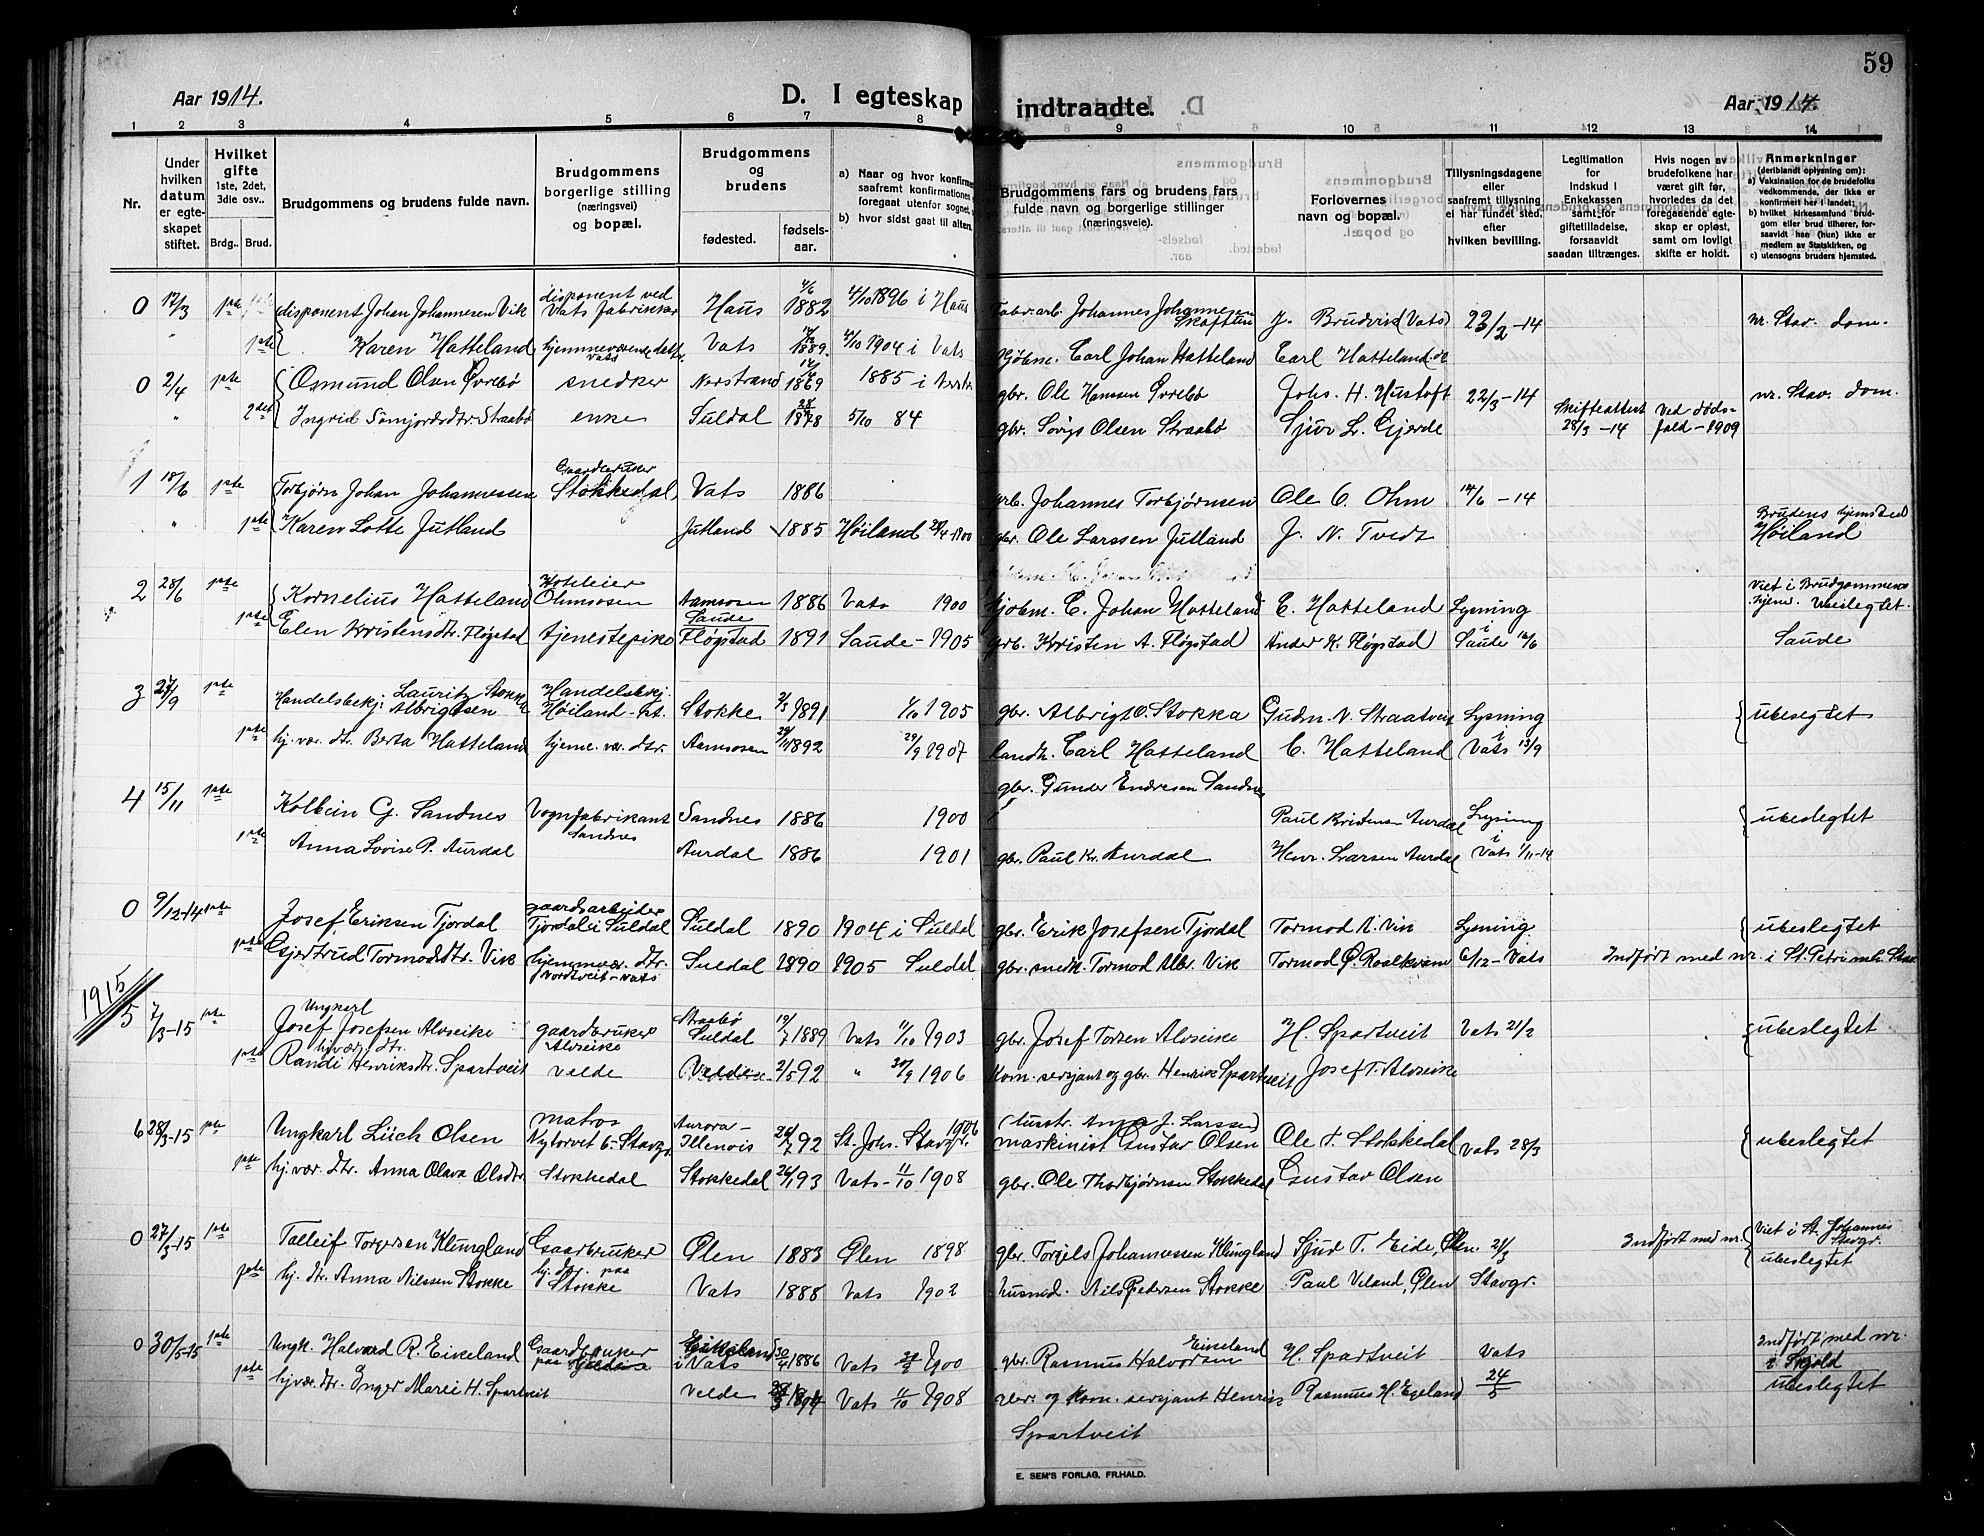 59
Aar 1914.
D. I egteskap indtraadte.
Aar 1914.
1 2 3 4 5 6 7 8 9 10 11 12 13 14
Nr.
Under hvilken datum er egteskapet stiftet.
Hvilket gifte 1ste, 2det, 3die osv..
Brdg.. Brud.
Brudgommens og brudens fulde navn.
Brudgommens borgerlige stilling (næringsvei) og bopæl.
Brudgommens og brudens
fødested. fødsels-aar.
a) Naar og hvor konfirme
saafremt konfirmationen
foregaat utenfor sognet,
b) hvor sidst gaat til alters.
Brudgommens fars og brudens fars fulde navn og borgerlige stillinger (næringsveie).
Forlovernes navn og bopæl.
Tillysningsdagene eller saafremt tillysning ei har fundet sted, efter hvilken bevilling.
Legitimation for indskud i Enkekassen samt for giftetilladelse, forsaavidt saadan tiltrænges.
Hvis nogen av brudefolkene har været gift før, hvorledes da det foregaaende egteskap er opløst, samt om lovligt skifte er holdt.
Anmerkninger (deriblandt oplysning om): a) Vaksination for de brudefolks vedkommende, der ikke er konfirmert her i landet; b) hvilket kirkesamfund brudgom eller brud tilhører, forsaavidt han (hun) ikke er medlem av Statskirken, og c) utensogns bruders hjemsted.
0 17/3 1ste disponent Johan Johannesen Vik disponent ved Vats fabrikker Haus 4/6 1882 4/10 1896 i Haus Fabr.arb. Johannes Johannesen Skaftun J. Brudvik (Vats) 22/2-14 nr. Stav. dom.
" 1ste Karen Hatteland hjemmeværende datter Vats Vats 1889. 4/10 1904 i Vats Kjøbm. Carl Johan Hatteland Carl Hatteland
0 2/4 1ste Osmund Olsen Øvrebø snedker Nerstrand 1869 1885 i Nerstr gbr. Ole Hansen Øvrebø Johs. H. Hustoft 22/3-14 nr. Stav. dom.
" 2det Ingrid Straabø enke Suldal 1878 5/10 84 gbr. Olsen Straabø Sjur L. Gjerde Skifteattest 28/3-14 Ved dødsfald-1909
1 18/6 1ste Torbjørn Johan Johannessen Gaardbruker Stokkedal Vats 1886 grb. Johannes Torbjørnsen Ole O. Ohm 14/6-14
" 1ste Karen Lotte Jutland Jutland 1885 Høiland 29/4-1900 gbr. Ole Larssen Jutland J. N. Tvedt Brudens hjemsted Høiland
2 28/6 1ste Kornelius Hatteland Hoteleier Ohmsosen Aamsosen 1886 Vats 1900 kjøbm. C. Johan Hatteland C. Hatteland Lysning Viet i Brudgommens hjem. Ubeslegtet.
1ste Elen Kristensdtr. Fløgstad tjenestepike Saude Fløgstad 1891 Saude-1905 grb. Kristen A. Fløgstad Ånder K. Fløgstad i Saude 14/6 Saude
3 27/9 1ste Handelsbekj: Lauritz Stokka Albrigtsen Handelsbekj. Høiland-st. Stokke 2/3 1891 1/10 1905 gbr. Albrigt O. Stokka Gudm. V. Straatveit Lysning ubeslegtet
1ste hj. vær. dtr. Berta Hatteland hjemme. vær. dtr. Aamsosen 29/11 1892 29/9 1907 landh. Carl Hatteland C. Hatteland i Vats 13/9
4 15/11 1ste Kolbein G. Sandnes Vognfabrikant Sandnes Sandnes 1886 1900 gbr. Gunder Endresen Sandnes Paul Kristensen Aurdal Lysning ubeslegtet
1ste Anna Lovise P. Aurdal Aurdal 1886 1901 gbr. Paul Kr. Aurdal Henr. Larsen Aurdal i Vats 1/11-14
0 9/12-14 1ste Josef Eriksen Tjordal gaardsarbeider Tjordal i Suldal Suldal 1890 1904 i Suldal gbr. Erik Josefsen Tjordal Tormod A. Vik Lysning ubeslegtet
1ste Gjertrud Tormodsdtr. Vik hjemmevær. dtr. Nordtveit-Vats Suldal 1890 1905 Suldal gbr. snedk. Tormod Albr. Vik Tormod Ø. Roalkvam 6/12-Vats Indført med nr. i St. Petri mk. Stav
1915
5 7/3-15 1ste Ungkarl Josef Josefsen Alvseike gaardbruker Alvseike Straabø Suldal 19/7 1889 Vats 11/10 1903 gbr. Josef Torsen Alvseike H. Spartveit Vats 21/2 ubeslegtet
1ste hj.vær. dtr. Randi Henriksdtr. Spartveit Velde 2/5 92 " 30/9 1906 Kom. sersjant og gbr. Henrik Spartveit Josef T. Alvseike
6 28/3-15 1ste Ungkarl Lüch Olsen matros Nytorvet 6-Stavgr. Aurora-Illenois 26/7 92 St. Johs. Stavgr. 1906 maskinist Gustav Olsen Ole T. Stokkedal Vats 28/3 ubeslegtet
1ste hj. vær. dtr. Anna Olava Olsdtr. Stokkedal Stokkedal 26/1 93 Vats-11/10 1908 gbr. Ole Thorbjørnsen Stokkedal Gustav Olsen
0 27/3-15 1ste Talleif Torgersen Klungland Gaardbruker Ølen 1883 Ølen 1898 gbr. Torgils Johannessen Klungland Sjud T. Eide, Ølen. 21/3 Indført med nr. Viet i St. Johannes Stavgr. ubeslegtet
1ste hj. dtr. Anna Nilssen Stokke hj. dtr. paa Stokke Vats 1888 Vats 1902 husmd. Nils Pedersen Stokke Paul Veland, Ølen Stavgr.
0 30/5-15 1ste Ungk. Halvard R. Eikeland Gaardbruker paa Eikeland i Vats 30/4 1886 Vats 1900 gbr. Rasmus Halvorsen Eikeland H. Spartveit Vats 24/5 Indført med nr. i Skjold
1ste hjvær. dtr. Inger Marie H. Spartveit Velde 1894 Vats 11/10 1908 gbr. og kom. sersjant Henrik Spartveit Rasmus H. Egeland ubeslegtet
E. SEM'S FORLAG, FR.HALD.